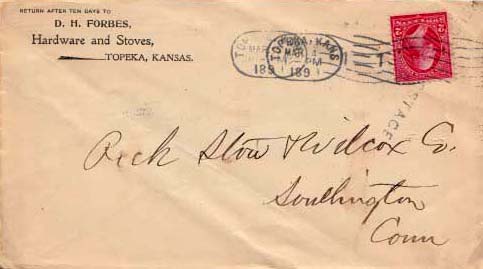 RETURN AFTER TEN DAYS TO
D. H. FORBES,
Hardware and Stoves,
TOPEKA, KANSAS.
TOPEKA, KANS
MAR
PM
189
189
1
2
2
POSTAGE
Peck Stow & Wilcox Co.
Southington
Conn